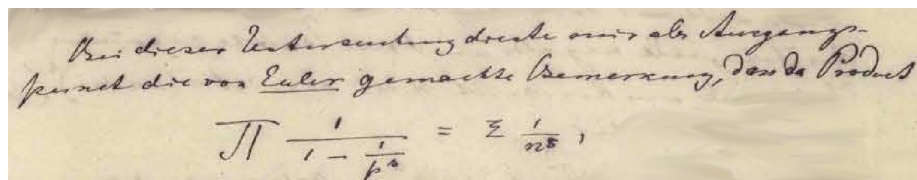 Bei dieser Untersuchung diente mir als Ausgangs-
punct die von Euler gemachte Bemerkung, dass das Product
∏ 1/(1 - 1/p^s) = Σ 1/n^s,